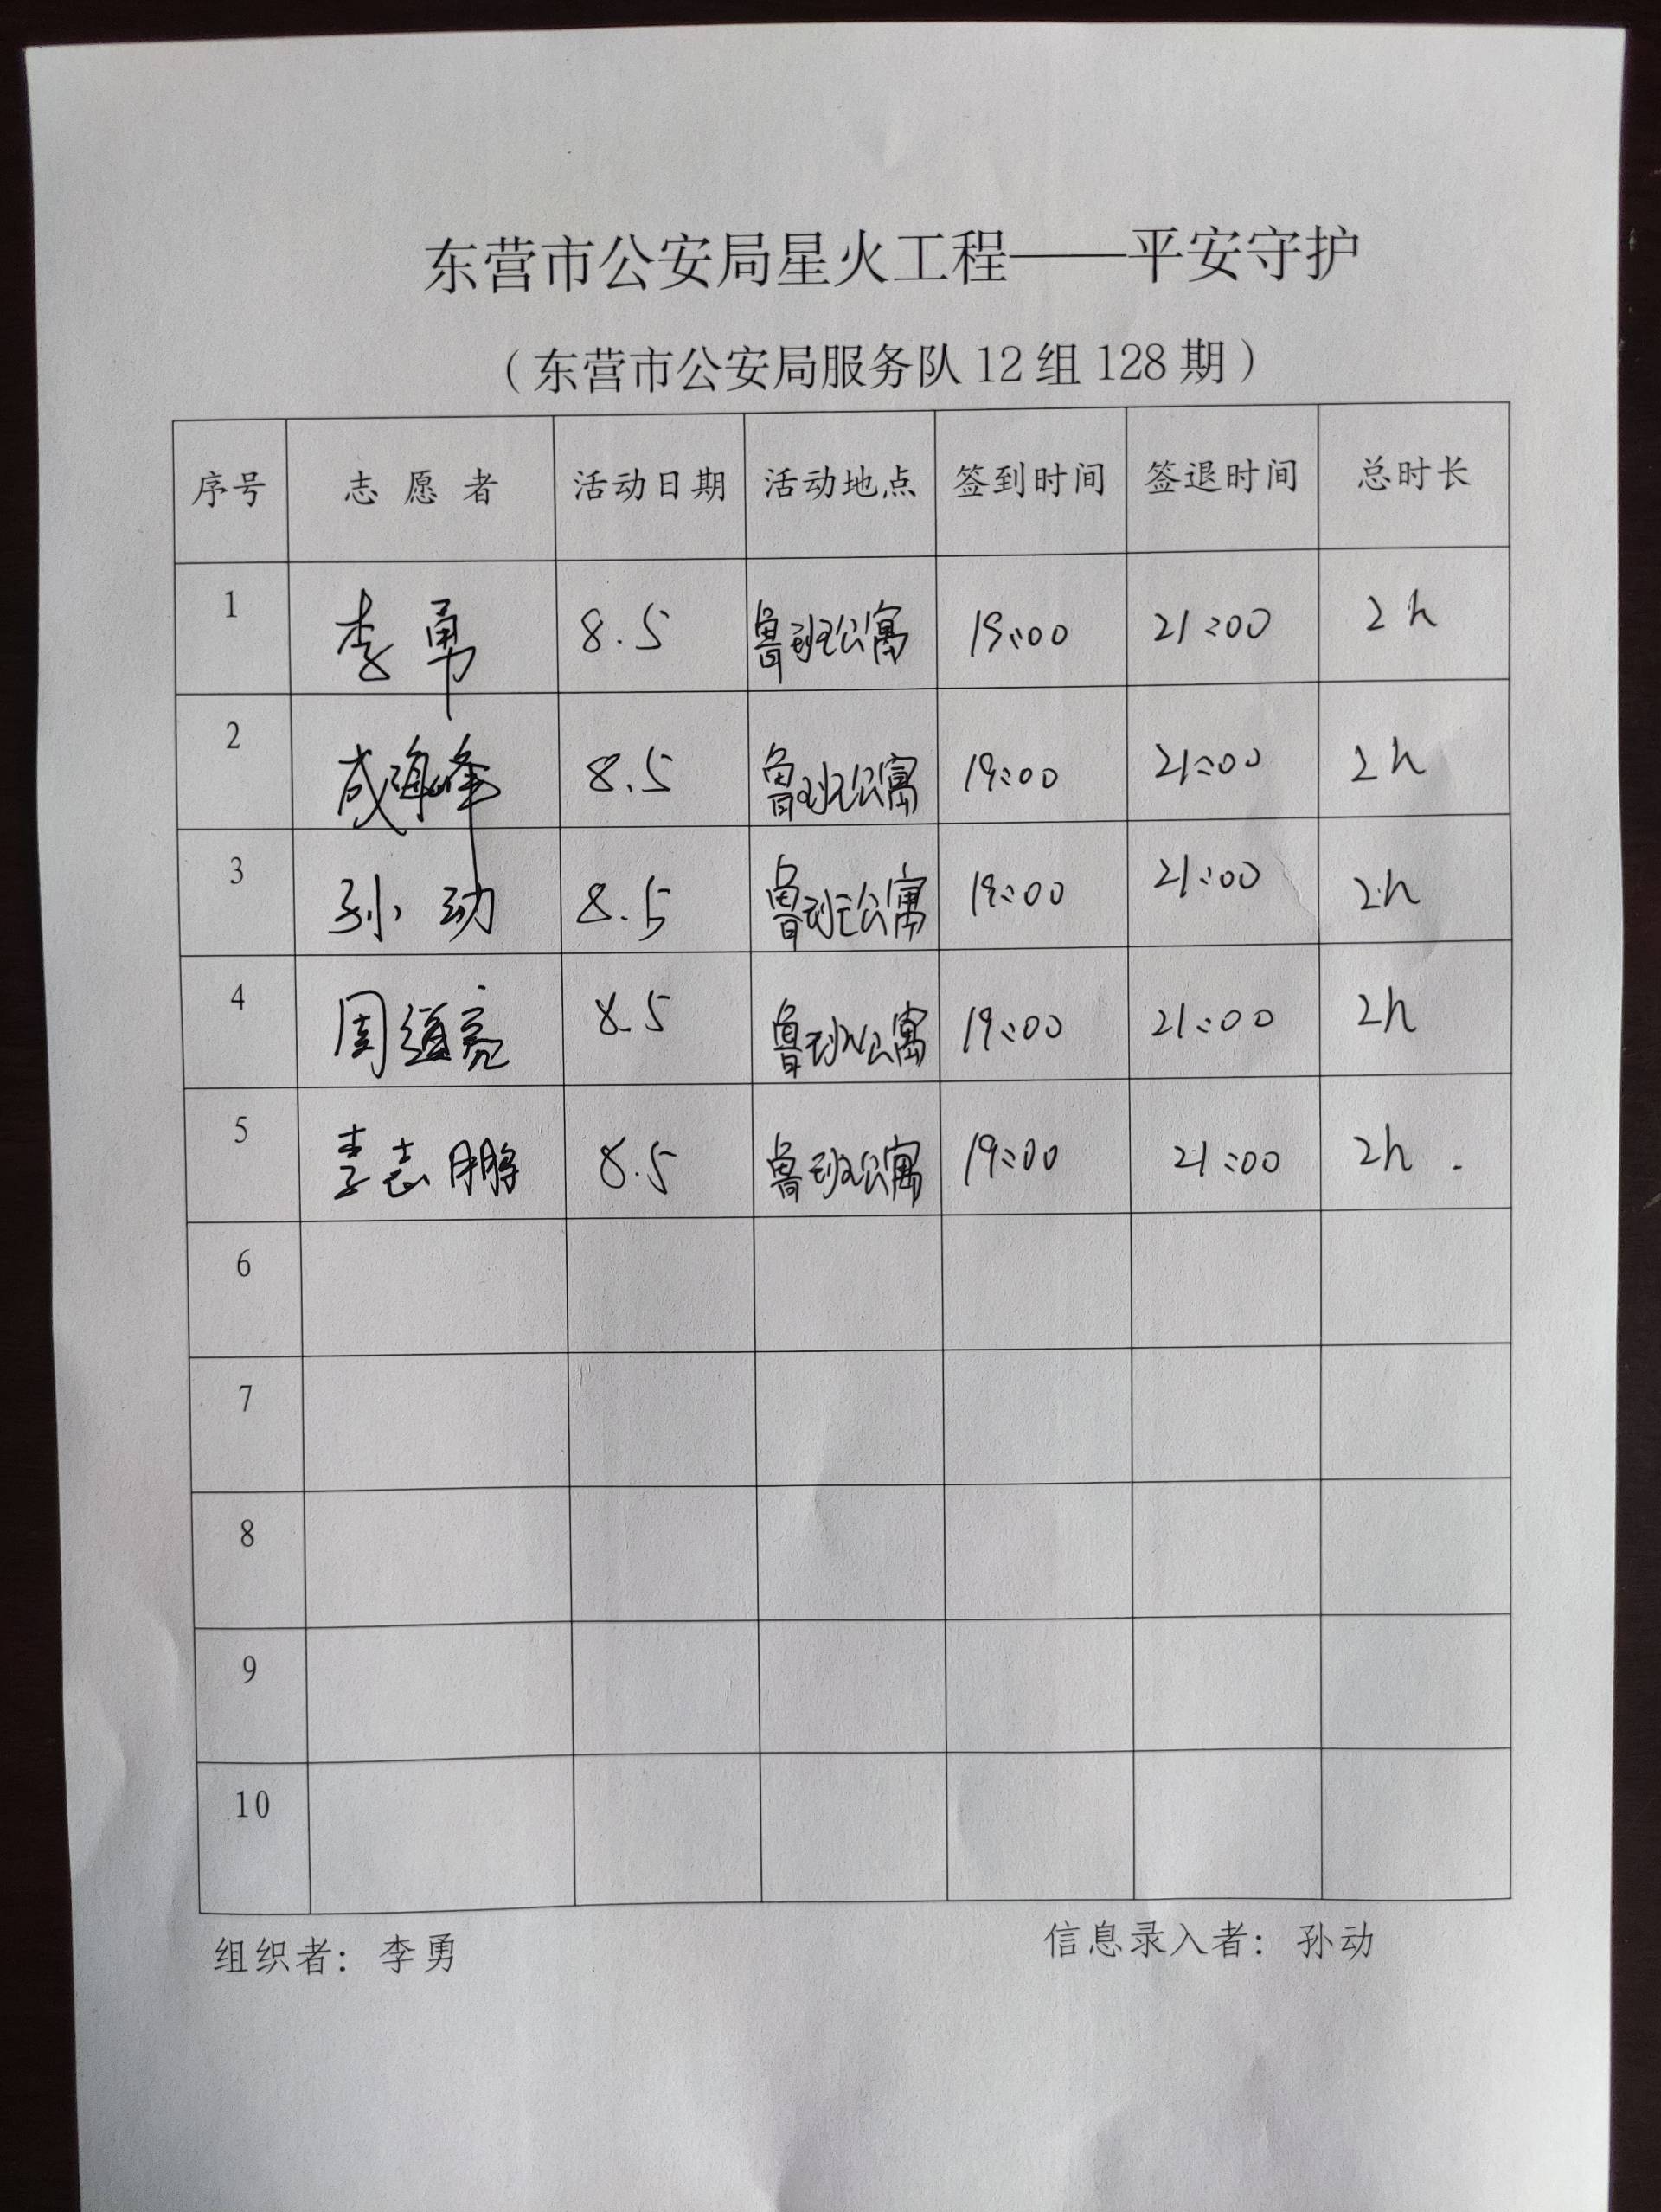 东营市公安局星火工程——平安守护
（东营市公安局服务队12组128期）
序号 志愿者 活动日期 活动地点 签到时间 签退时间 总时长
1 李勇 8.5 鲁班公寓 19:00 21:00 2h
2 成海峰 8.5 鲁班公寓 19:00 21:00 2h
3 孙动 8.5 鲁班公寓 19:00 21:00 2h
4 周道亮 8.5 鲁班公寓 19:00 21:00 2h
5 李志鹏 8.5 鲁班公寓 19:00 21:00 2h.
6
7
8
9
10
组织者：李勇 信息录入者：孙动